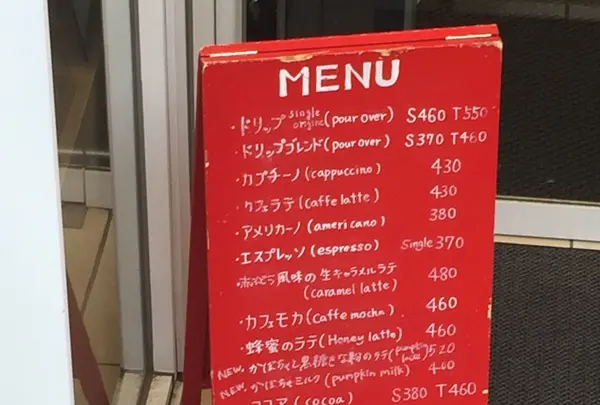 MENU
・ドリップ single origine (pour over) S460 T550
・ドリップブレンド(pour over) S370 T460
・カプチーノ(cappuccino) 430
・カフェラテ(caffe latte) 430
・アメリカーノ(americano) 380
・エスプレッソ(espresso) Single 370
風味の生キャラメルラテ 480
(caramel latte)
・カフェモカ(caffe mocha) 460
・蜂蜜のラテ(Honey latte) 460
NEW. かぼちゃと黒糖きな粉のラテ(pumpkin 520
NEW. かぼちゃミルク(pumpkin milk) 400
ココア(cocoa) S380 T460